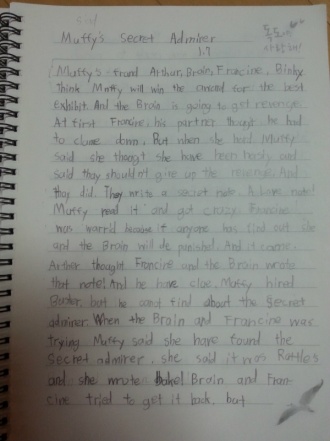 Muffy's Secret Admirer
1.7
Muffy's frand Arthur, Brain, Francine, Binky
Think Muffy will win the award for the best
Exhibit. And the Brain is going to get revenge.
At first Francine, his partner thought he had
to clame down. But when she heed Muffy
said she thought she have been hasty and
said they should'nt give up the revenge. And
they did. They write a secret note. A Love note!
Muffy read it and got crazy. Francine
was warri'd because it anyone has find out she
and the Brain will de panished. And it come.
Arther thought Francine and the Brain wrote
that note! And he have clue. Muffy hired
Buster, but he canot find about the secret
admirer. When the Brain and Francine was
trying Muffy said she have found the
secret admirer, she said it was Rattles
and she wrote Brain and Fran-
cine tried to get it back, but